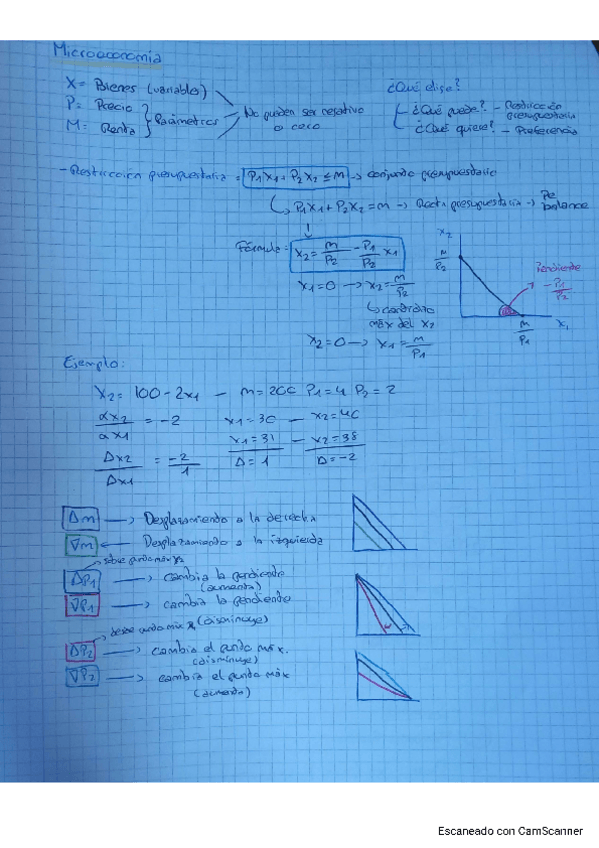 Microeconomia
X = Bienes (variable)
P = Precio
M = Renta
Parámetros
No pueden ser negativo
o cero
¿Qué elige?
¿Qué puede? - Restricción
presupuestaria
¿Qué quiere? - Preferencia
- Restricción presupuestaria = P1X1 + P2X2 ≤ m → conjunto presupuestario
P1X1 + P2X2 = m → Recta presupuestaria → De
balance
Fórmula = X2 = m/P2 - P1/P2 X1
X1 = 0 → X2 = m/P2
cantidad
máx del X2
X2 = 0 → X1 = m/P1
X2
m/P2
Pendiente
-P1/P2
m/P1
X1
Ejemplo:
X2 = 100 - 2x1 — m = 200 P1 = 4 P2 = 2
αx2/αx1 = -2
X1 = 30 — X2 = 40
X1 = 31 — X2 = 38
Δx2/Δx1 = -2/1
Δ = 1
Δ = -2
Δm → Desplazamiento a la derecha
∇m ← Desplazamiento a la izquierda
sobre punto máx
ΔP1 → cambia la pendiente
(aumenta)
∇P1 → cambia la pendiente
(disminuye)
desde punto máx X1
ΔP2 → cambia el punto máx.
(disminuye)
∇P2 → cambia el punto máx
(aumenta)
Escaneado con CamScanner